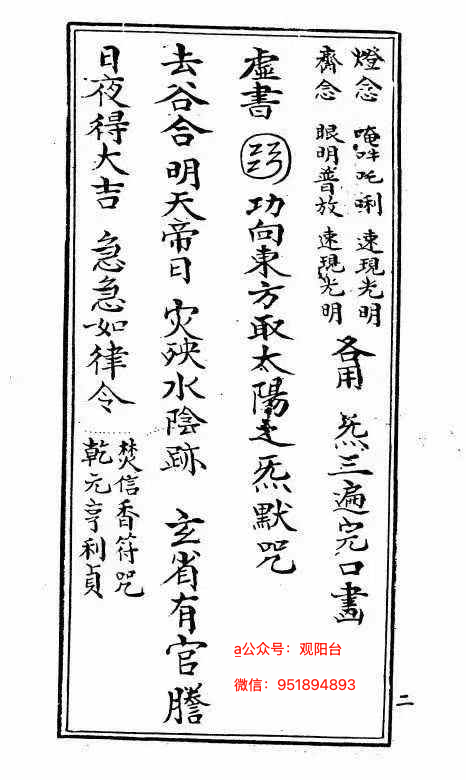 燈念 唵吽吒唎 速現光明
齋念 眼明普放 速現光明
各用 炁三遍完口畫
虛書 功向東方取太陽之炁默咒
去谷合明天帝日 灾殃水陰跡 玄省有官謄
日夜得大吉 急急如律令
焚信香符咒
乾元亨利貞
二
a公众号：观阳台
微信：951894893